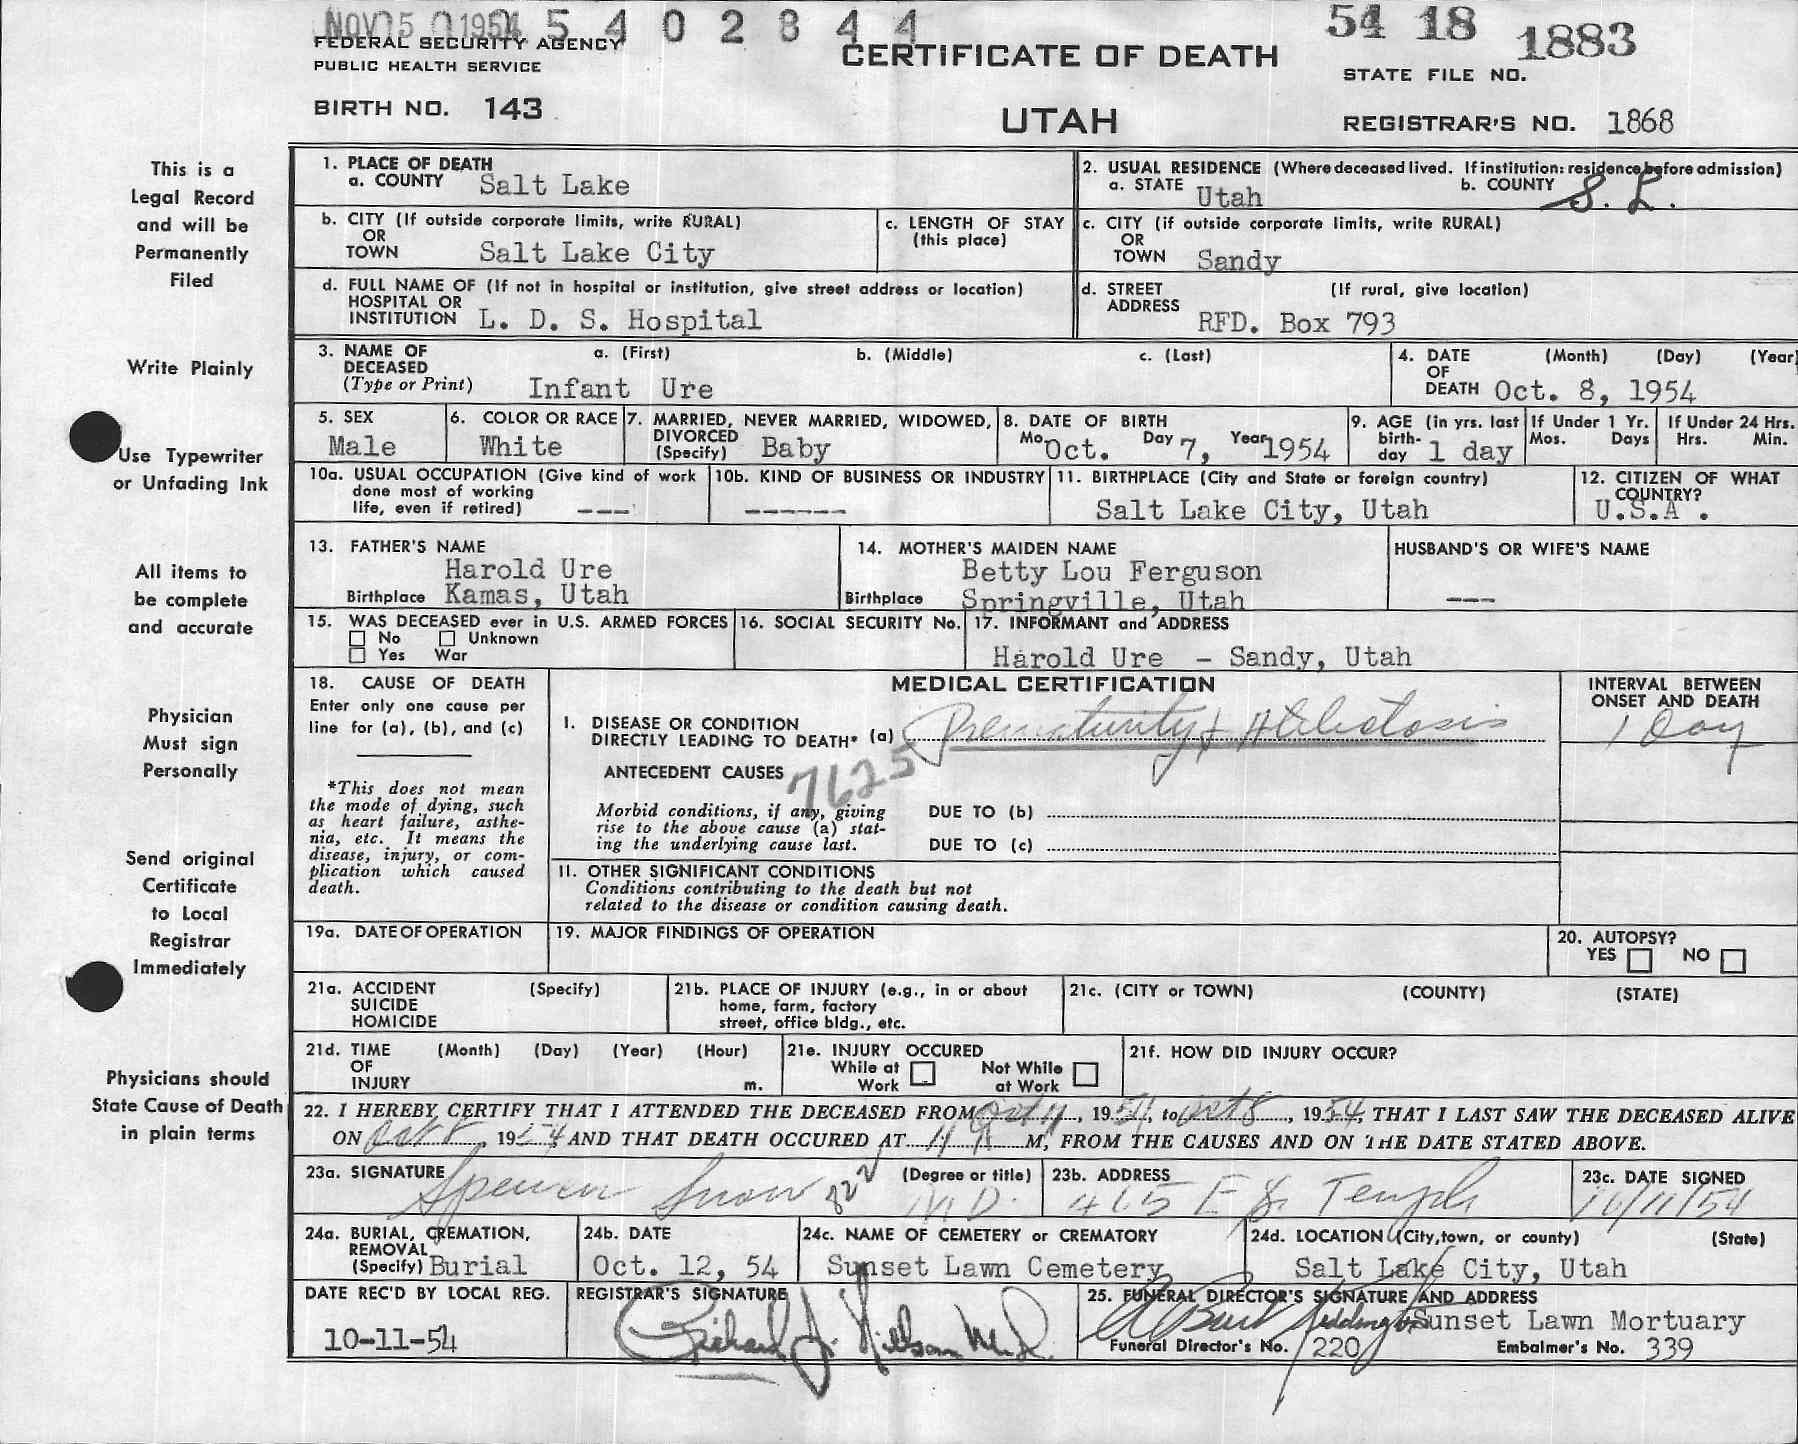 NOV 5 1954 0 5 4 0 2 8 4 4
54 18 1883
FEDERAL SECURITY AGENCY
PUBLIC HEALTH SERVICE
CERTIFICATE OF DEATH
STATE FILE NO.
BIRTH NO. 143
UTAH
REGISTRAR'S NO. 1868
This is a
Legal Record
and will be
Permanently
Filed
Write Plainly
Use Typewriter
or Unfading Ink
All items to
be complete
and accurate
Physician
Must sign
Personally
Send original
Certificate
to Local
Registrar
Immediately
Physicians should
State Cause of Death
in plain terms
1. PLACE OF DEATH
a. COUNTY Salt Lake
2. USUAL RESIDENCE (Where deceased lived. If institution: residence before admission)
a. STATE Utah b. COUNTY S. L.
b. CITY (If outside corporate limits, write RURAL)
OR
TOWN Salt Lake City
c. LENGTH OF STAY
(this place)
c. CITY (if outside corporate limits, write RURAL)
OR
TOWN Sandy
d. FULL NAME OF (If not in hospital or institution, give street address or location)
HOSPITAL OR
INSTITUTION L. D. S. Hospital
d. STREET (If rural, give location)
ADDRESS
RFD. Box 793
3. NAME OF a. (First) b. (Middle) c. (Last)
DECEASED
(Type or Print) Infant Ure
4. DATE (Month) (Day) (Year)
OF
DEATH Oct. 8, 1954
5. SEX
Male
6. COLOR OR RACE
White
7. MARRIED, NEVER MARRIED, WIDOWED,
DIVORCED
(Specify) Baby
8. DATE OF BIRTH
Mo. Oct. Day 7, Year 1954
9. AGE (in yrs. last
birth-
day 1 day
If Under 1 Yr.
Mos. Days
If Under 24 Hrs.
Hrs. Min.
10a. USUAL OCCUPATION (Give kind of work
done most of working
life, even if retired) ---
10b. KIND OF BUSINESS OR INDUSTRY
------
11. BIRTHPLACE (City and State or foreign country)
Salt Lake City, Utah
12. CITIZEN OF WHAT
COUNTRY?
U.S.A .
13. FATHER'S NAME
Harold Ure
Birthplace Kamas, Utah
14. MOTHER'S MAIDEN NAME
Betty Lou Ferguson
Birthplace Springville, Utah
HUSBAND'S OR WIFE'S NAME
---
15. WAS DECEASED ever in U.S. ARMED FORCES
No Unknown
Yes War
16. SOCIAL SECURITY No.
17. INFORMANT and ADDRESS
Harold Ure - Sandy, Utah
18. CAUSE OF DEATH
Enter only one cause per
line for (a), (b), and (c)
*This does not mean
the mode of dying, such
as heart failure, asthe-
nia, etc. It means the
disease, injury, or com-
plication which caused
death.
MEDICAL CERTIFICATION
INTERVAL BETWEEN
ONSET AND DEATH
1 Day
I. DISEASE OR CONDITION
DIRECTLY LEADING TO DEATH* (a) Prematurity & Atelectasis
7625
ANTECEDENT CAUSES
Morbid conditions, if any, giving
rise to the above cause (a) stat-
ing the underlying cause last.
DUE TO (b)
DUE TO (c)
II. OTHER SIGNIFICANT CONDITIONS
Conditions contributing to the death but not
related to the disease or condition causing death.
19a. DATE OF OPERATION
19. MAJOR FINDINGS OF OPERATION
20. AUTOPSY?
YES NO
21a. ACCIDENT (Specify)
SUICIDE
HOMICIDE
21b. PLACE OF INJURY (e.g., in or about
home, farm, factory
street, office bldg., etc.
21c. (CITY or TOWN) (COUNTY) (STATE)
21d. TIME (Month) (Day) (Year) (Hour)
OF
INJURY m.
21e. INJURY OCCURED
While at Work Not While at Work
21f. HOW DID INJURY OCCUR?
22. I HEREBY CERTIFY THAT I ATTENDED THE DECEASED FROM Oct , 1954, to Oct 8, 1954, THAT I LAST SAW THE DECEASED ALIVE
ON Oct 8, 1954 AND THAT DEATH OCCURED AT M, FROM THE CAUSES AND ON THE DATE STATED ABOVE.
23a. SIGNATURE (Degree or title)
Spencer Snow M D.
23b. ADDRESS
465 E So. Temple
23c. DATE SIGNED
10/11/54
24a. BURIAL, CREMATION,
REMOVAL
(Specify) Burial
24b. DATE
Oct. 12, 54
24c. NAME OF CEMETERY or CREMATORY
Sunset Lawn Cemetery
24d. LOCATION (City, town, or county) (State)
Salt Lake City, Utah
DATE REC'D BY LOCAL REG.
10-11-54
REGISTRAR'S SIGNATURE
Richard J. M.D.
25. FUNERAL DIRECTOR'S SIGNATURE AND ADDRESS
Sunset Lawn Mortuary
Funeral Director's No. 220 Embalmer's No. 339